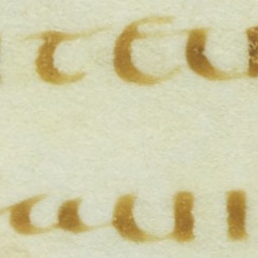 tcu
aui